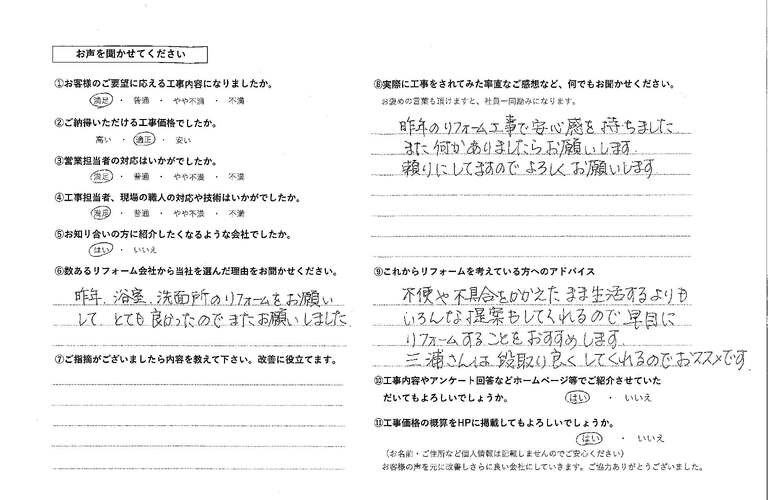 お声を聞かせてください
①お客様のご要望に応える工事内容になりましたか。
満足 ・ 普通 ・ やや不満 ・ 不満
②ご納得いただける工事価格でしたか。
高い ・ 適正 ・ 安い
③営業担当者の対応はいかがでしたか。
満足 ・ 普通 ・ やや不満 ・ 不満
④工事担当者、現場の職人の対応や技術はいかがでしたか。
満足 ・ 普通 ・ やや不満 ・ 不満
⑤お知り合いの方に紹介したくなるような会社でしたか。
はい ・ いいえ
⑥数あるリフォーム会社から当社を選んだ理由をお聞かせください。
昨年、浴室、洗面所のリフォームをお願い
して、とても良かったのでまたお願いしました
⑦ご指摘がございましたら内容を教えて下さい。改善に役立てます。
⑧実際に工事をされてみた率直なご感想など、何でもお聞かせください。
お褒めの言葉も頂けますと、社員一同励みになります。
昨年のリフォーム工事で安心感を持ちました
また何かありましたらお願いします.
頼りにしてますのでよろしくお願いします
⑨これからリフォームを考えている方へのアドバイス
不便や不具合をかかえたまま生活するよりも
いろんな提案もしてくれるので早目に
リフォームすることをおすすめします
三浦さんは段取り良くしてくれるのでおススメです.
⑩工事内容やアンケート回答などホームページ等でご紹介させていた
だいてもよろしいでしょうか。 はい ・ いいえ
⑪工事価格の概算をHPに掲載してもよろしいでしょうか。
はい ・ いいえ
（お名前・ご住所など個人情報は記載しませんのでご安心ください）
お客様の声を元に改善しさらに良い会社にしていきます。ご協力ありがとうございました。